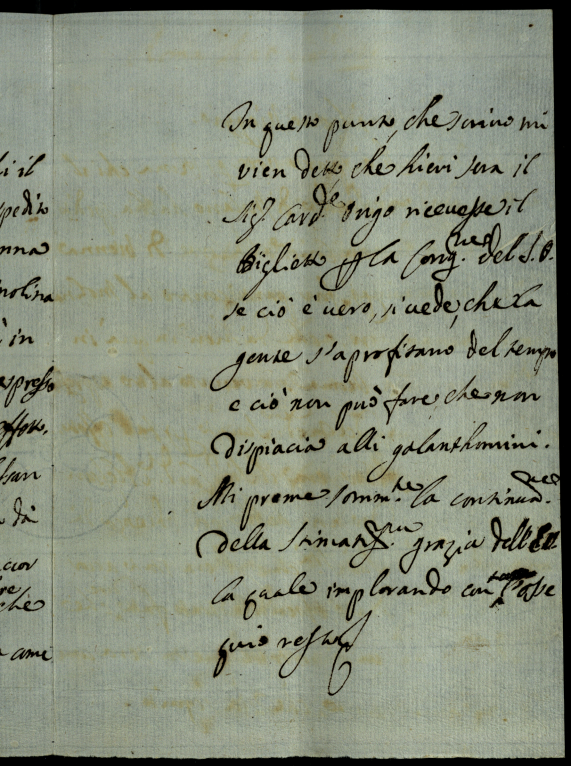 In questo punto, che scrivo mi
vien detto, che hieri sera il
Sig.r Card.le Origo ricevesse il
Biglietto p la Cong.ne del S. O.
se ciò è vero, si vede, che la
gente s'aprofitano del tempo
e ciò non può fare, che non
dispiacia alli galanthomini.
Mi preme somm.te la continua.ne
della stimat.ma grazia dell'
la quale implorando con osse
quio resto
li il
pedito
nna
in
espresso
da
che
come